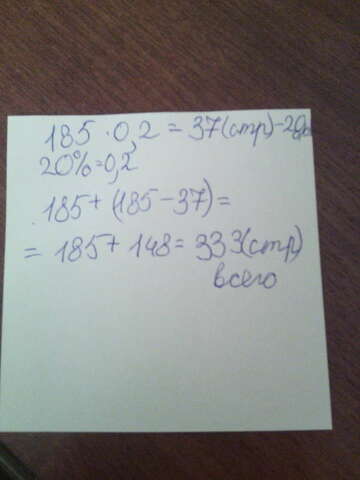 185 · 0,2 = 37(стр)-20%
20%=0,2
185+(185-37)=
= 185+ 148= 333(стр)
всего